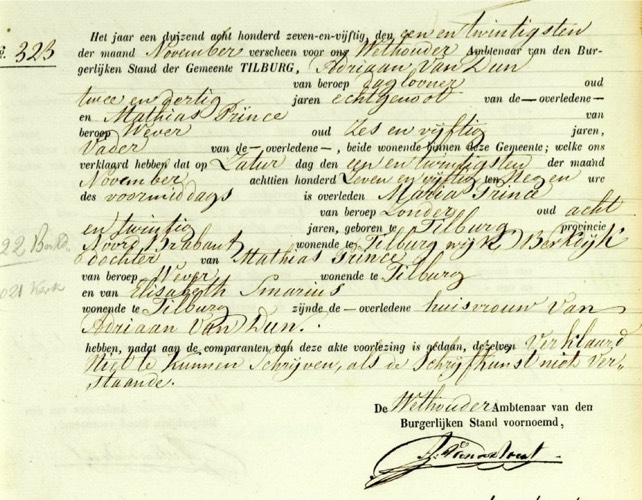 Het jaar een duizend acht honderd zeven-en-vijftig, den een en twintigsten
N. 323. der maand November verscheen voor ons Wethouder Ambtenaar van den Bur-
gerlijken Stand der Gemeente TILBURG, Adriaan Van Dun
van beroep daglooner oud
twee en dertig jaren echtgenoot van de—overledene—
en Mathias Prince van
beroep Wever oud Zes en vijftig jaren,
Vader van de—overledene—, beide wonende binnen deze Gemeente; welke ons
verklaard hebben dat op Zatur dag den een en twintigsten der maand
November achttien honderd Zeven en vijftig ten Negen ure
des voormiddags is overleden Maria Prince
van beroep Zonder oud acht
en twintig jaren, geboren te Tilburg provincie
Noord Brabant wonende te Tilburg wijk Berkdijk
dochter van Mathias Prince
van beroep Wever wonende te Tilburg
en van Elisabeth Smarius
wonende te Tilburg zijnde de—overledene huisvrouw Van
Adriaan Van Dun.
hebben, nadat aan de comparanten van deze akte voorlezing is gedaan, dezelven Verklaard
Niet te kunnen Schrijven, als de Schrijfkunst niet Ver-
staande.
De Wethouder Ambtenaar van den
Burgerlijken Stand voornoemd,